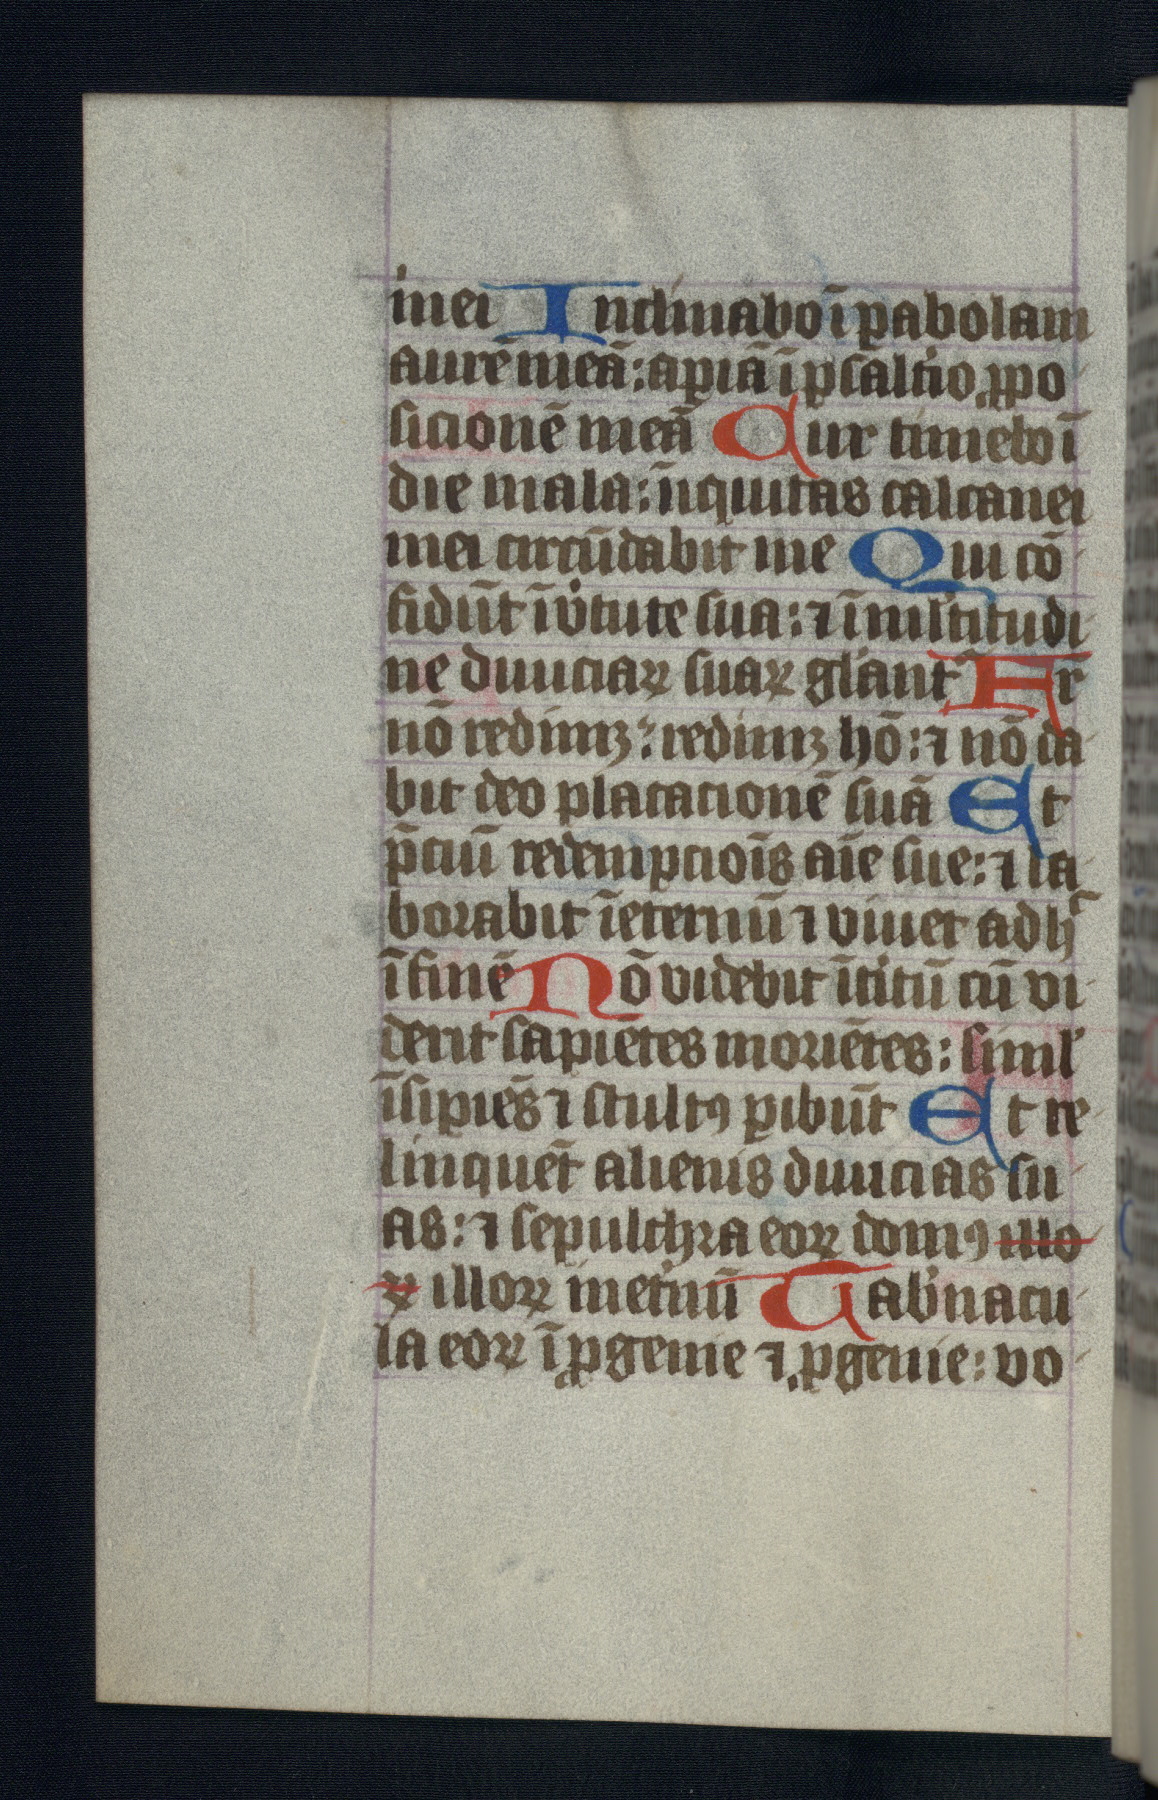 mei Inclinabo ī ꝑabolam
aurē meā: apiā ī psaltio ꝓpo
sicionē meā Cur timebo ī
die mala: īiquitas calcanei
mei circūdabit me Qui cō
fidūt ī v̓tute sua: ⁊ ī mltitudi
ne diuiciaꝝ suaꝝ gl̓ant̄ Fr
nō redimꝫ: redimꝫ hō: ⁊ nō da
bit deo placacionē suā Et
p̄ciū redempciōis aīe sue: ⁊ la
borabit ī eternū ⁊ viuet adh̓
ī finē Nō videbit īt̓itū cū vi
derit sapiētes moriētes: simil̓
īsipiēs ⁊ stultꝰ ꝑibūt Et re
linquēt alienis diuicias su
as: ⁊ sepulchra eoꝝ domꝰ illo
ꝝ illoꝝ ī et̓nū Tab̓nacu
la eoꝝ ī ꝓgenie ⁊ ꝓgenie: vo